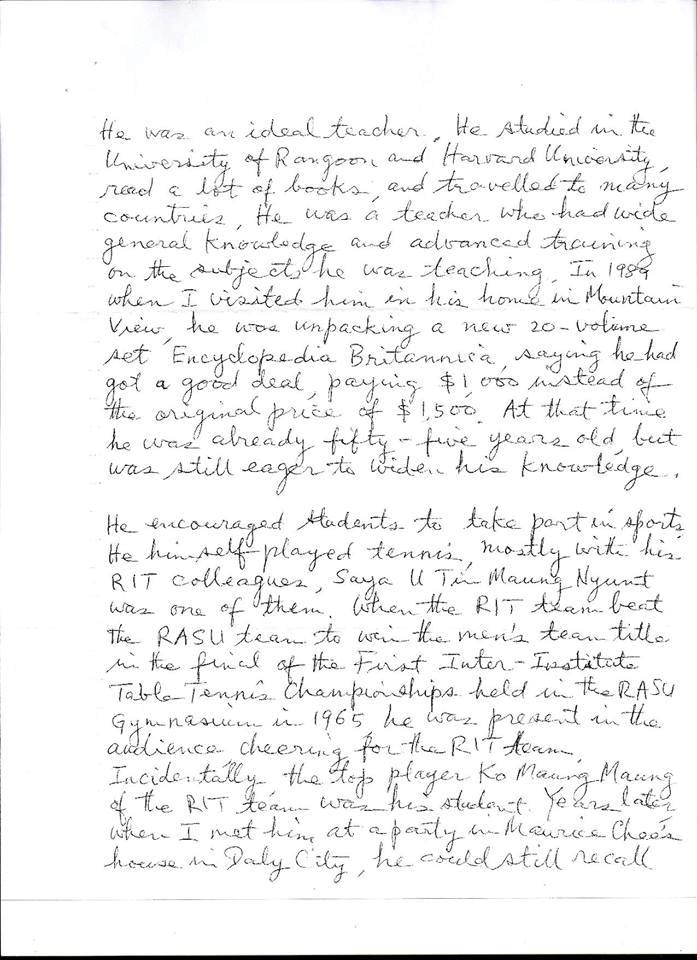 He was an ideal teacher. He studied in the
University of Rangoon and Harvard University,
read a lot of books, and travelled to many
countries. He was a teacher who had wide
general knowledge and advanced training
on the subjects he was teaching. In 1989
when I visited him in his home in Mountain
View, he was unpacking a new 20-volume
set Encyclopedia Britannica, saying he had
got a good deal, paying $1,000 instead of
the original price of $1,500. At that time
he was already fifty-five years old, but
was still eager to widen his knowledge.
He encouraged students to take part in sports.
He himself played tennis, mostly with his
RIT colleagues, Saya U Tin Maung Nyunt
was one of them. When the RIT team beat
the RASU team to win the men's team title
in the final of the First Inter-Institute
Table Tennis Championships held in the RASU
Gymnasium in 1965 he was present in the
audience cheering for the RIT team.
Incidentally the top player Ko Maung Maung
of the RIT team was his student. Years later,
when I met him at a party in Maurice Chee's
house in Daly City, he could still recall